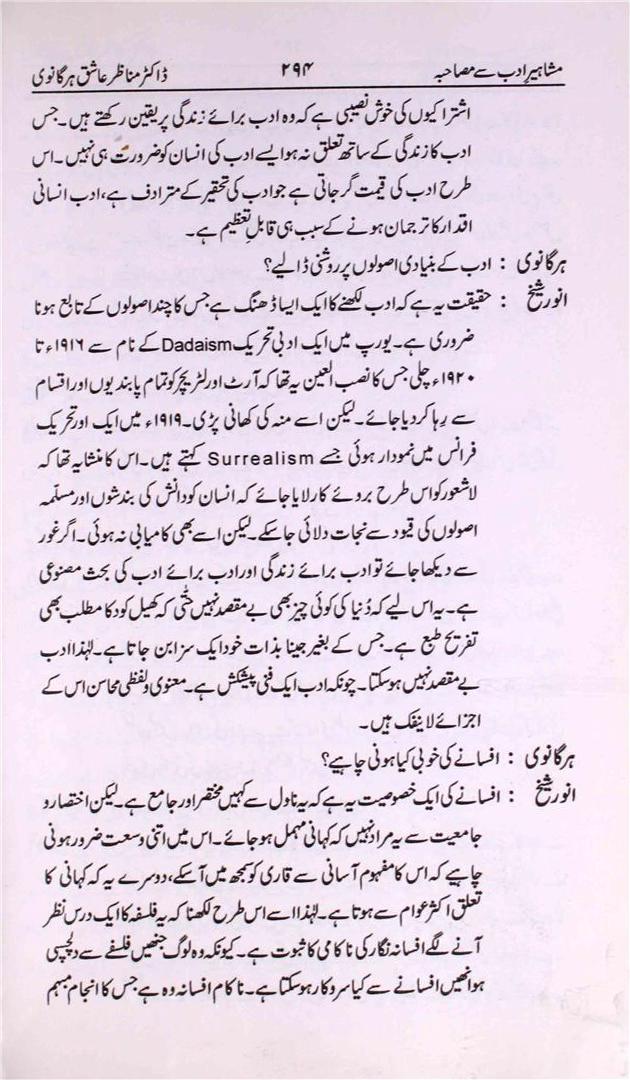 مشاہیرِ ادب سے مصاحبہ ۲۹۴ ڈاکٹر مناظر عاشق ہرگانوی
اشتراکیوں کی خوش نصیبی ہے کہ وہ ادب برائے زندگی پر یقین رکھتے ہیں۔ جس
ادب کا زندگی کے ساتھ تعلق نہ ہو ایسے ادب کی انسان کو ضرورت ہی نہیں۔ اس
طرح ادب کی قیمت گر جاتی ہے جو ادب کی تحقیر کے مترادف ہے، ادب انسانی
اقدار کا ترجمان ہونے کے سبب ہی قابلِ تعظیم ہے۔
ہرگانوی : ادب کے بنیادی اصولوں پر روشنی ڈالیے؟
انور شیخ : حقیقت یہ ہے کہ ادب لکھنے کا ایک ایسا ڈھنگ ہے جس کا چند اصولوں کے تابع ہونا
ضروری ہے۔ یورپ میں ایک ادبی تحریک Dadaism کے نام سے ۱۹۱۶ء تا
۱۹۲۰ء چلی جس کا نصب العین یہ تھا کہ آرٹ اور لٹریچر کو تمام پابندیوں اور اقسام
سے رِہا کر دیا جائے۔ لیکن اسے منہ کی کھانی پڑی۔ ۱۹۱۹ء میں ایک اور تحریک
فرانس میں نمودار ہوئی جسے Surrealism کہتے ہیں۔ اس کا منشا یہ تھا کہ
لاشعور کو اس طرح بروئے کار لایا جائے کہ انسان کو دانش کی بندشوں اور مسلّمہ
اصولوں کی قیود سے نجات دلائی جا سکے۔ لیکن اسے بھی کامیابی نہ ہوئی۔ اگر غور
سے دیکھا جائے تو ادب برائے زندگی اور ادب برائے ادب کی بحث مصنوعی
ہے۔ یہ اس لیے کہ دُنیا کی کوئی چیز بھی بے مقصد نہیں حتّٰی کہ کھیل کود کا مطلب بھی
تفریح طبع ہے۔ جس کے بغیر جینا بذات خود ایک سزا بن جاتا ہے۔ لہٰذا ادب
بے مقصد نہیں ہو سکتا۔ چونکہ ادب ایک فنی پیشکش ہے۔ معنوی و لفظی محاسن اس کے
اجزائے لاینفک ہیں۔
ہرگانوی : افسانے کی خوبی کیا ہونی چاہیے؟
انور شیخ : افسانے کی ایک خصوصیت یہ ہے کہ یہ ناول سے کہیں مختصر اور جامع ہے۔ لیکن اختصار و
جامعیت سے یہ مراد نہیں کہ کہانی مہمل ہو جائے۔ اس میں اتنی وسعت ضرور ہونی
چاہیے کہ اس کا مفہوم آسانی سے قاری کو سمجھ میں آ سکے، دوسرے یہ کہ کہانی کا
تعلق اکثر عوام سے ہوتا ہے۔ لہٰذا اسے اس طرح لکھنا کہ یہ فلسفہ کا ایک درس نظر
آنے لگے افسانہ نگار کی ناکامی کا ثبوت ہے۔ کیونکہ وہ لوگ جنھیں فلسفے سے دلچسپی
ہو انھیں افسانے سے کیا سروکار ہو سکتا ہے۔ ناکام افسانہ وہ ہے جس کا انجام مبہم